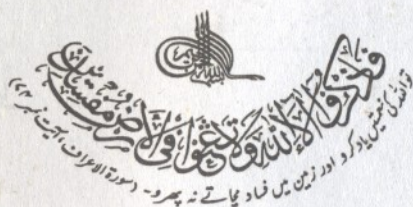 بسم الله الرحمن الرحيم
فاذكروا آلاء الله ولا تعثوا في الأرض مفسدين
تو اللہ کی نعمتیں یاد کرو اور زمین میں فساد مچاتے نہ پھرو۔ (سورۃ الاعراف، آیت نمبر ۷۴)